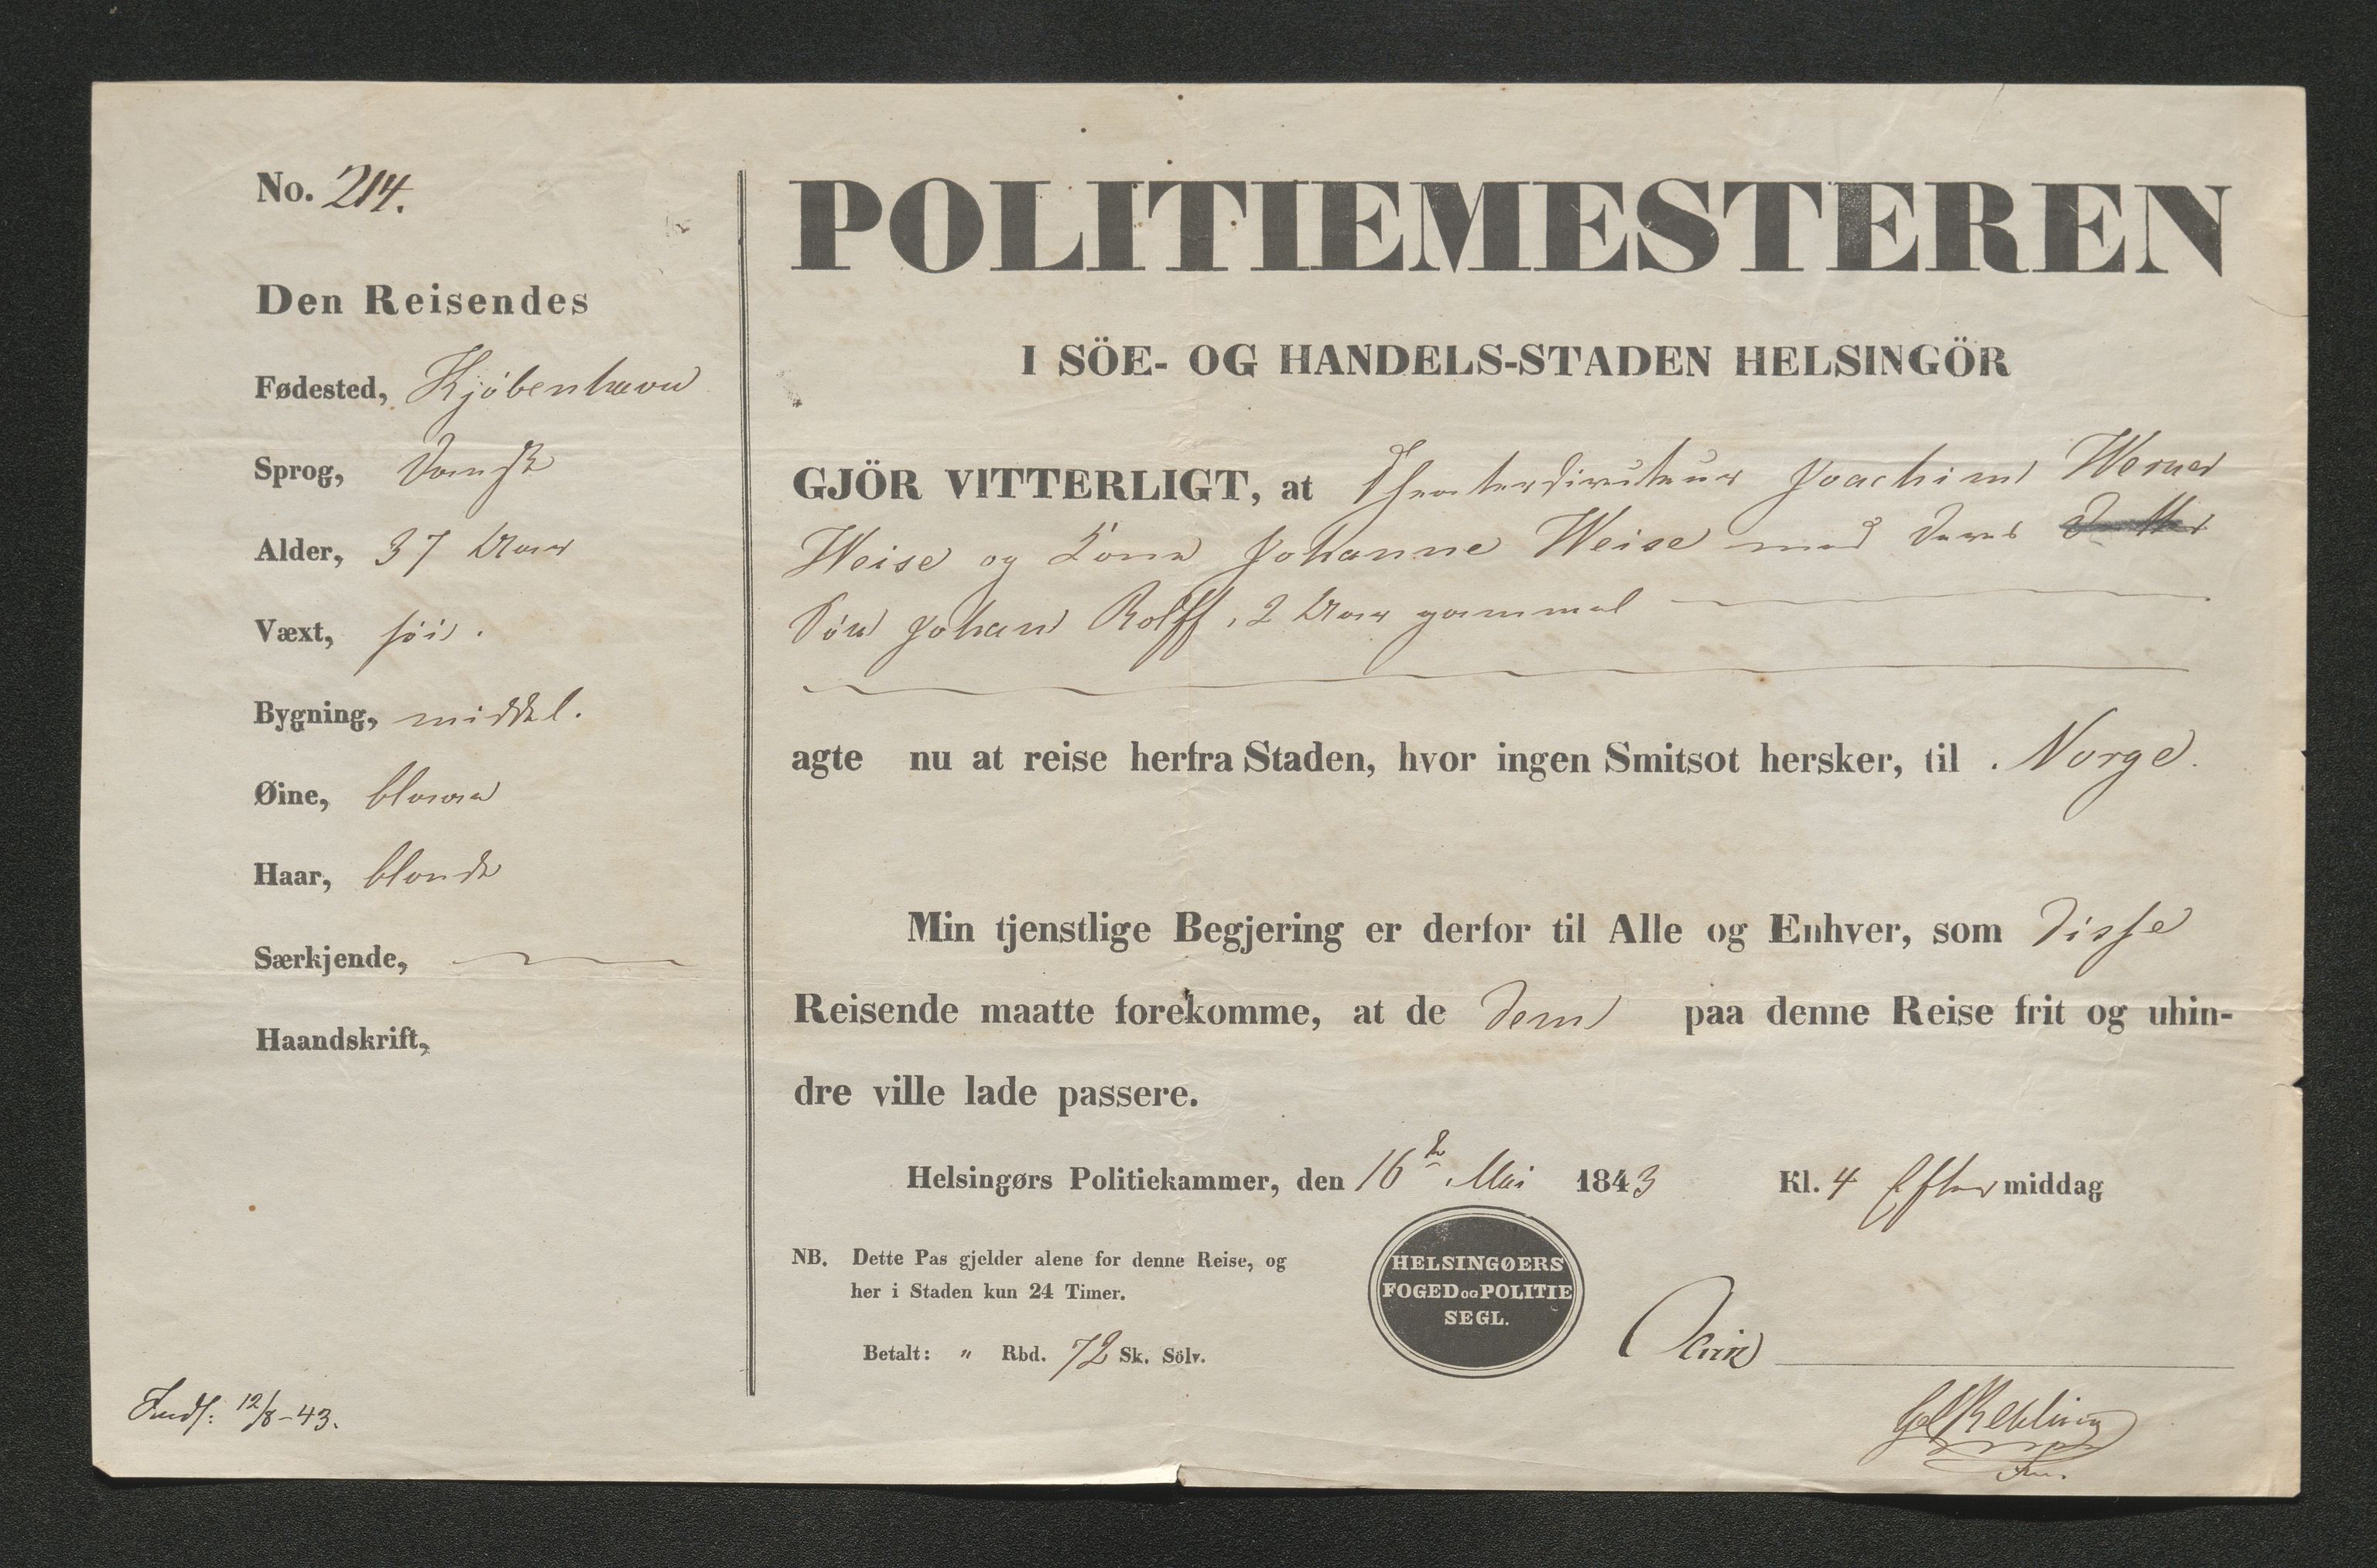 No. 214.
Den Reisendes
Fødested, Kjöbenhavn
Sprog, Dansk
Alder, 37 Aar
Væxt, höi.
Bygning, middel.
Øine, blaae
Haar, blonde
Særkjende,
Haandskrift,
Indl: 12/8-43.
POLITIEMESTEREN
I SÖE- OG HANDELS-STADEN HELSINGÖR
GJÖR VITTERLIGT, at Theaterdirecteur Joachim Werner
Weise og Kone Johanne Weise med deres
Sön Johan Rolff, 2 Aar gammel
agte nu at reise herfra Staden, hvor ingen Smitsot hersker, til Norge.
Min tjenstlige Begjering er derfor til Alle og Enhver, som disse
Reisende maatte forekomme, at de dem paa denne Reise frit og uhin-
dre ville lade passere.
Helsingørs Politiekammer, den 16de Mai 1843 Kl. 4 Eftermiddag
NB. Dette Pas gjelder alene for denne Reise, og
her i Staden kun 24 Timer.
Betalt: " Rbd. 72 Sk. Sölv.
HELSINGØERS
FOGED OG POLITIE
SEGL.